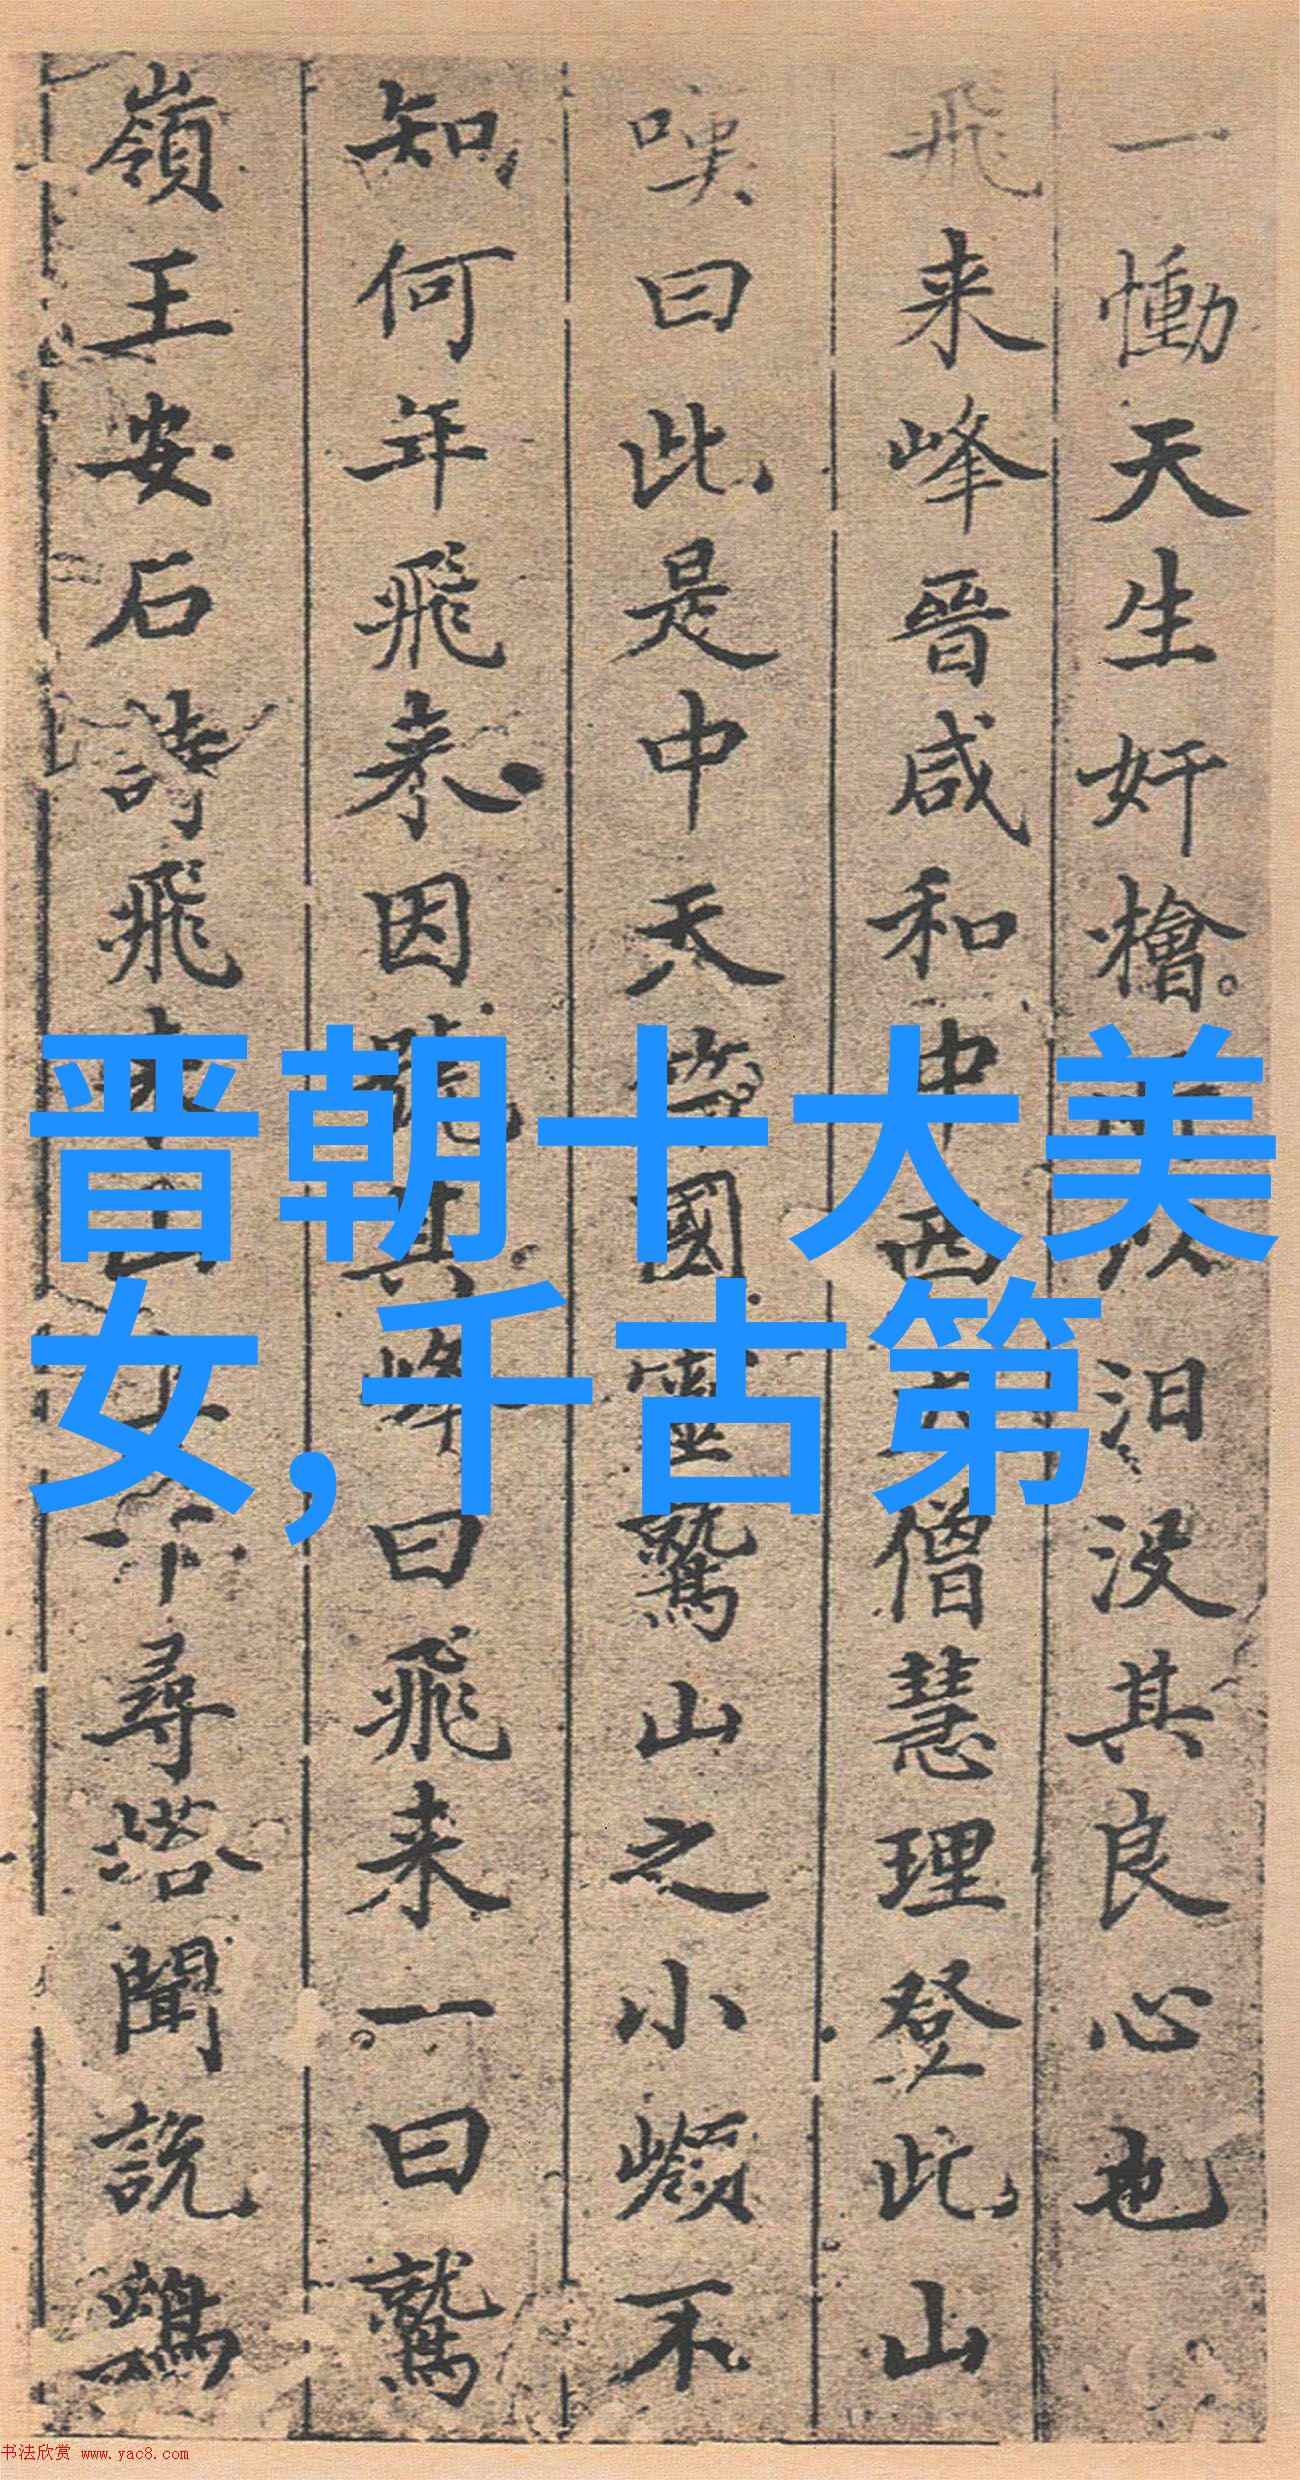 一慟天生奸檜所以汨没其良心也
飛来峰晉咸和中西天僧慧理登此山
嘆曰此是中天竺國靈鷲山之小嶺不
知何年飛来因號其峰曰飛来一曰鷲
嶺王安石詩飛来山上千尋塔聞説鷄
晋朝十大美
女,千古第
书法欣赏 www.yac8.com